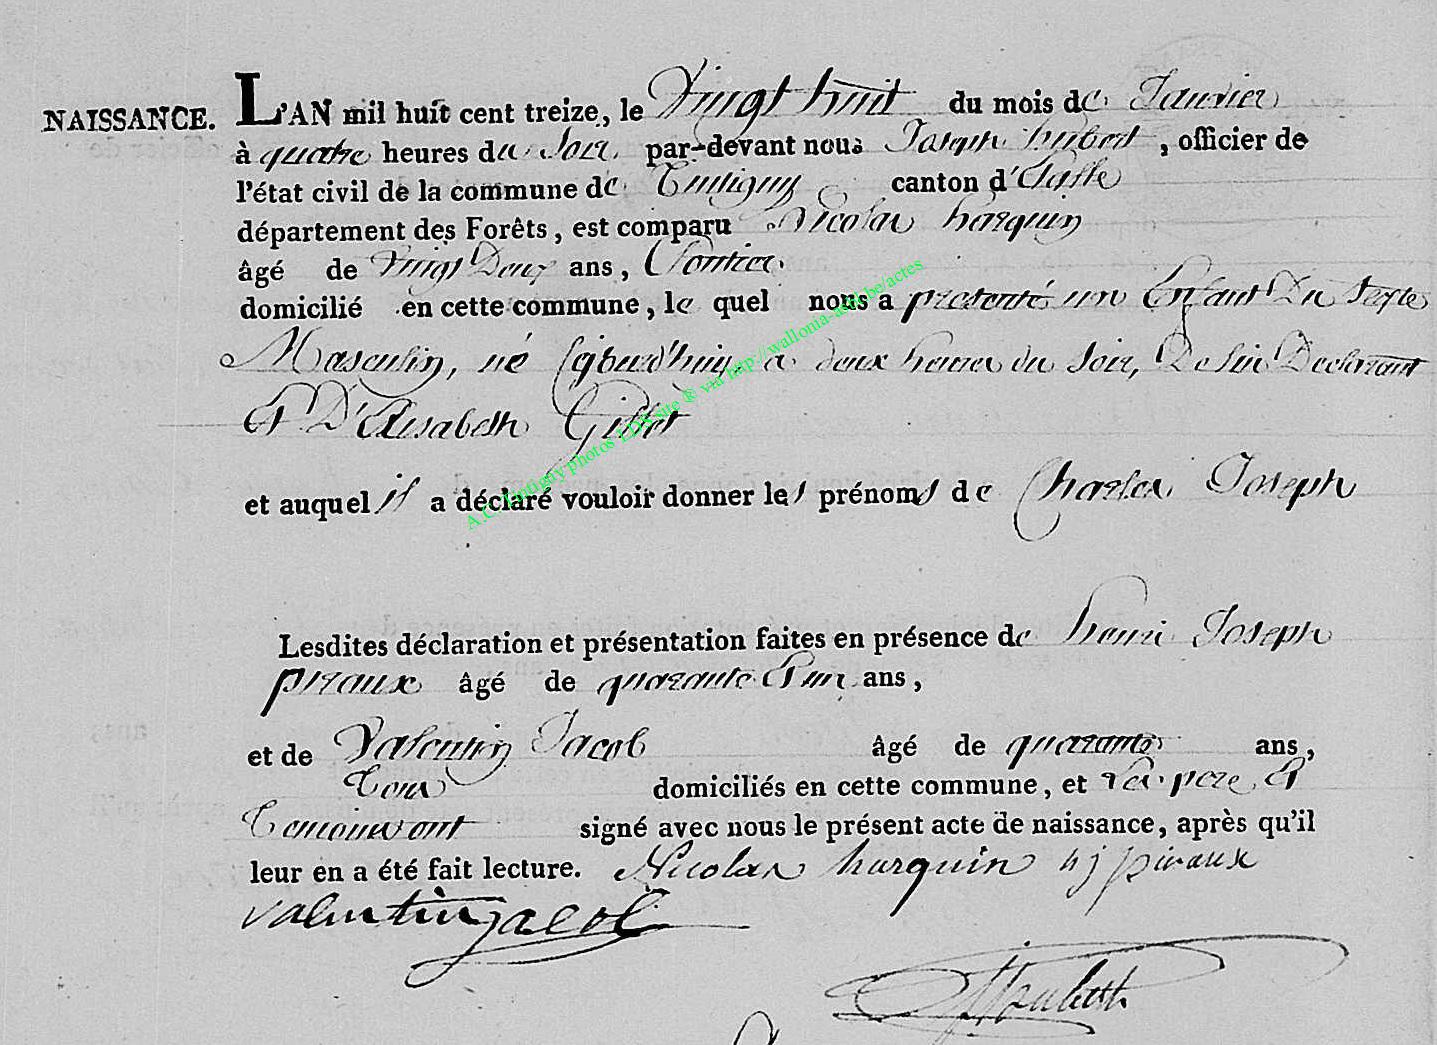 NAISSANCE. L'AN mil huit cent treize, le Vingt huit du mois de Janvier
à quatre heures du Soir par-devant nous Joseph hubert, officier de
l'état civil de la commune de Tintigny canton d'Etalle
département des Forêts, est comparu Nicolas harquin
âgé de Vingt Deux ans,
domicilié en cette commune, le quel nous a presenté un Enfant Du Sexe
Masculin, né à deux heures du Soir, De lui Declarant
Et D'Elisabeth Gillet
et auquel il a déclaré vouloir donner les prénoms de Charles Joseph
A.C. Tintigny photos LDS site ® via http://wallonia-asbl.be/actes
Lesdites déclaration et présentation faites en présence de henri Joseph
piraux âgé de quarante Et un ans,
et de Valentin Jacob âgé de quarante ans,
Tous domiciliés en cette commune, et Les pere Et
Temoins ont signé avec nous le présent acte de naissance, après qu'il
leur en a été fait lecture. Nicolas harquin hj piraux
valentin jacob
J houbert